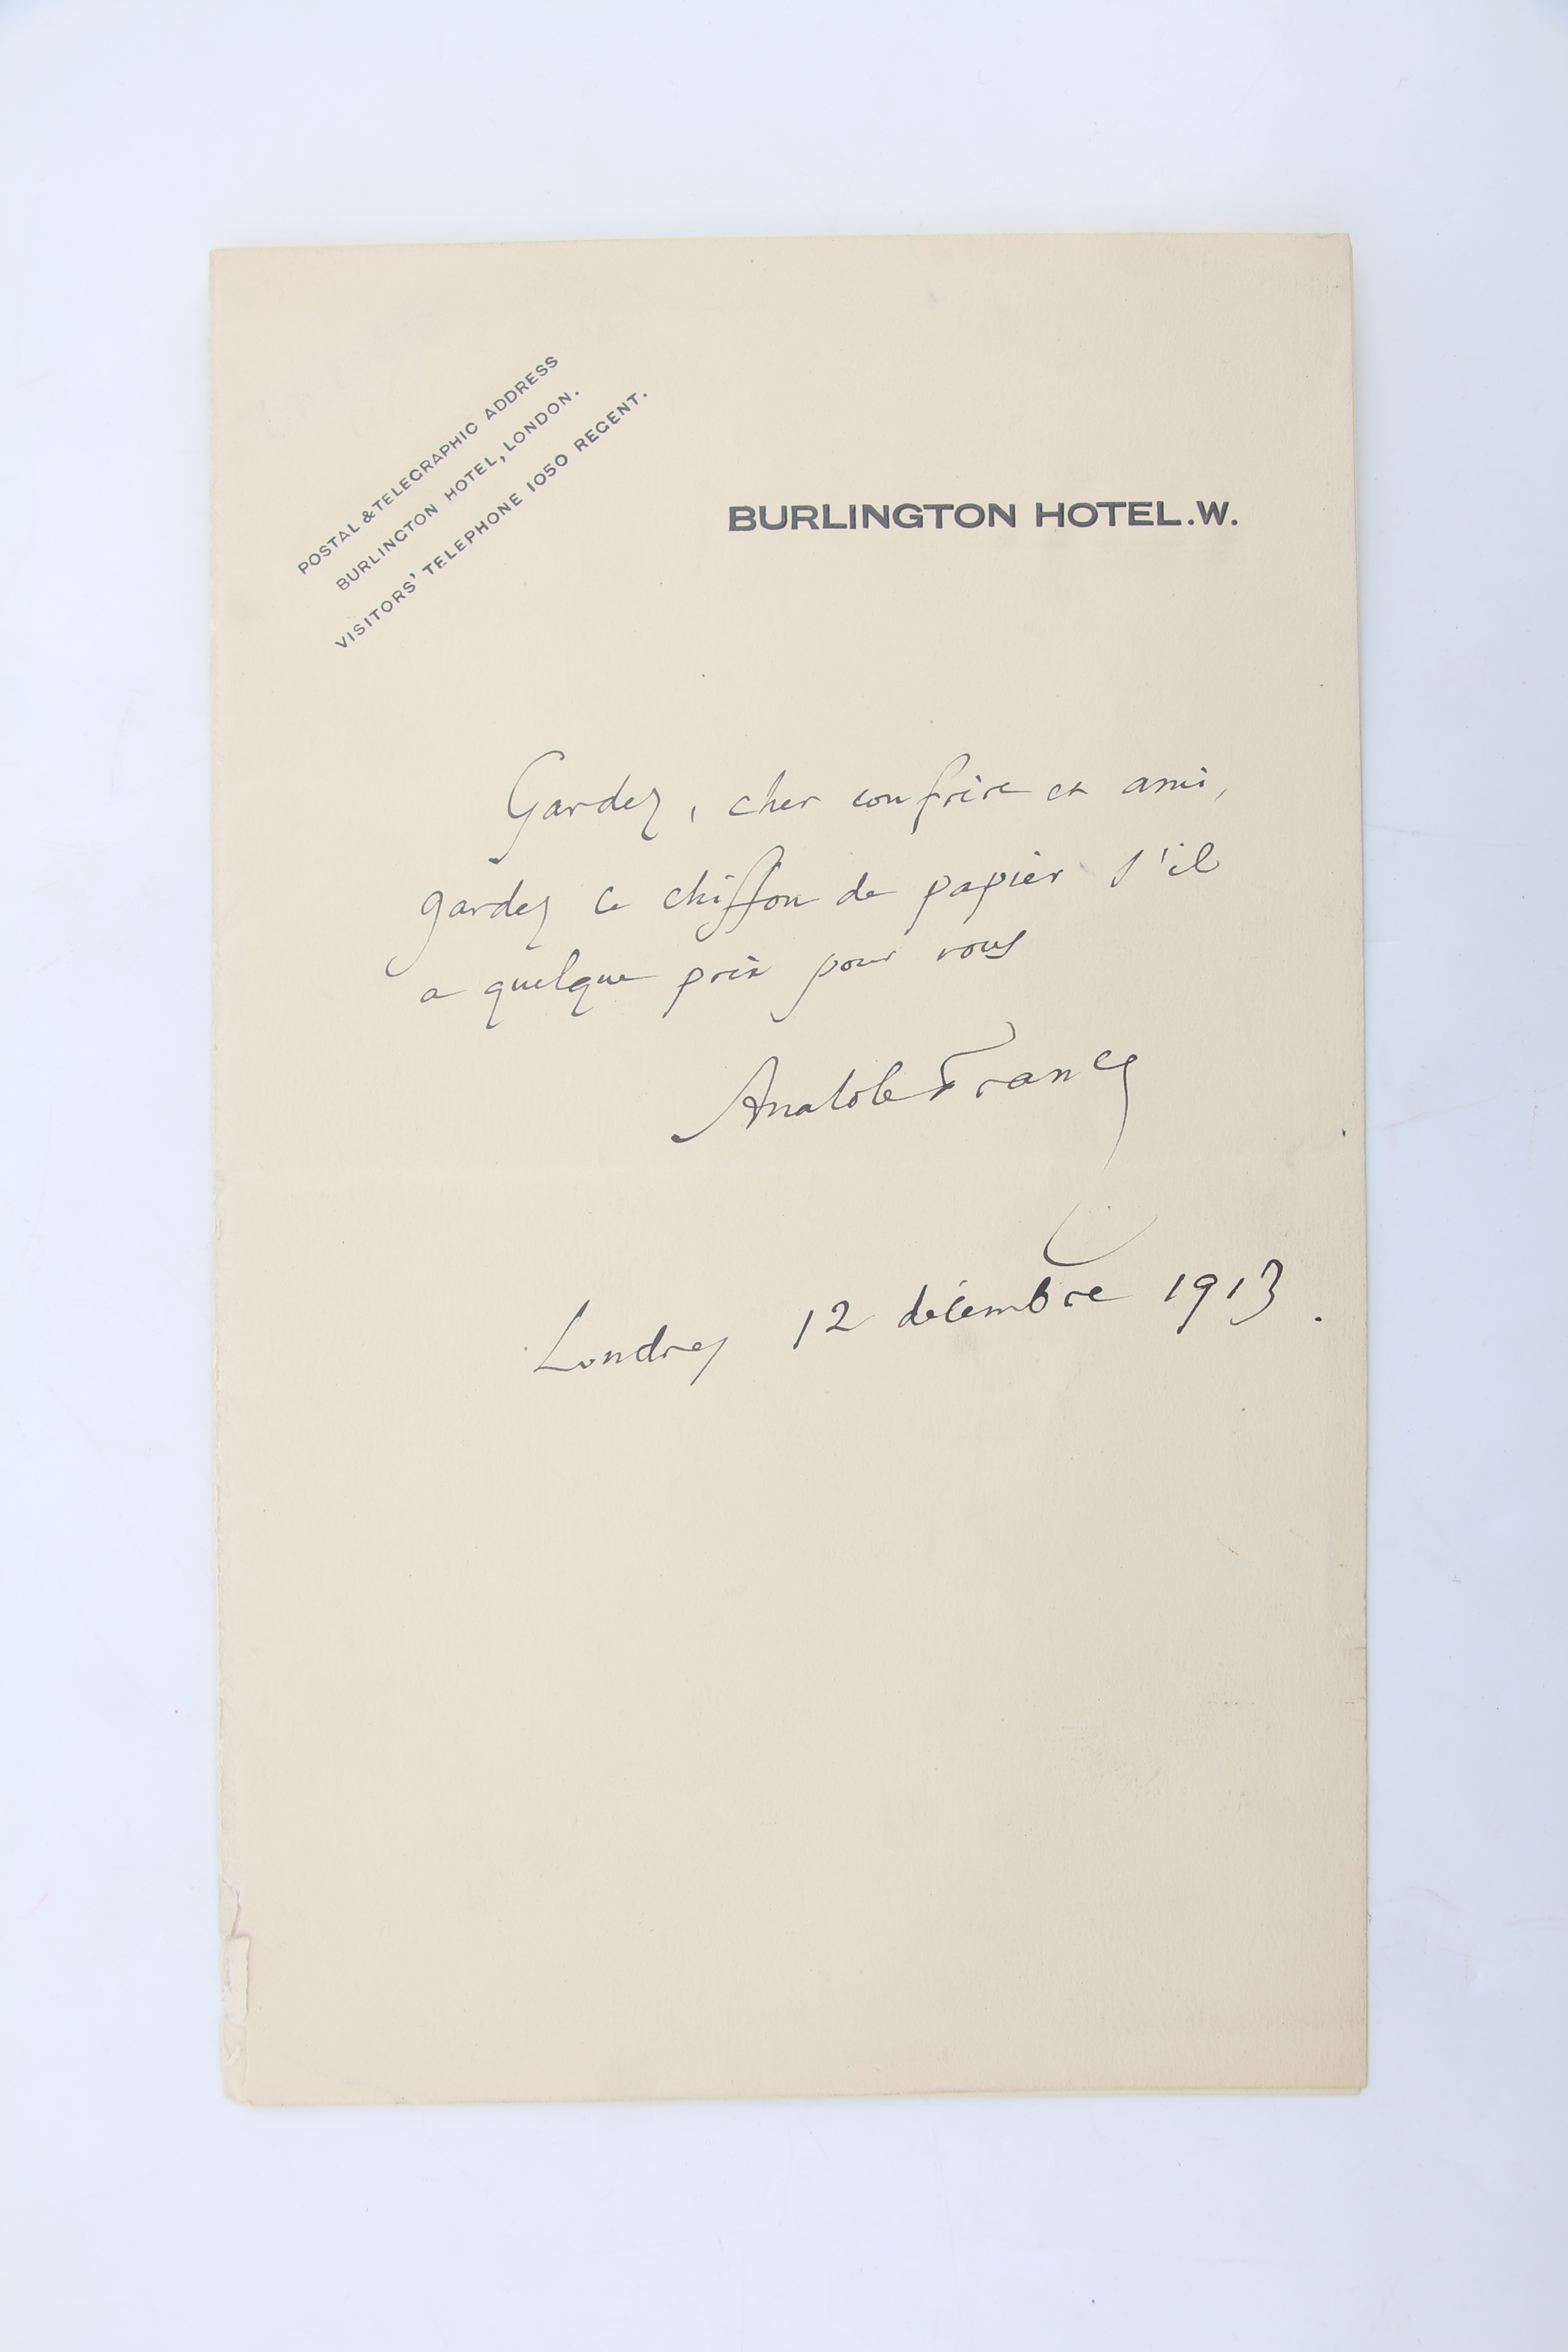 POSTAL & TELEGRAPHIC ADDRESS
BURLINGTON HOTEL, LONDON.
VISITORS' TELEPHONE 1050 REGENT.
BURLINGTON HOTEL.W.
Gardez, cher confrère et ami,
gardez ce chiffon de papier s'il
a quelque prix pour vous
Anatole France
Londres 12 décembre 1913.